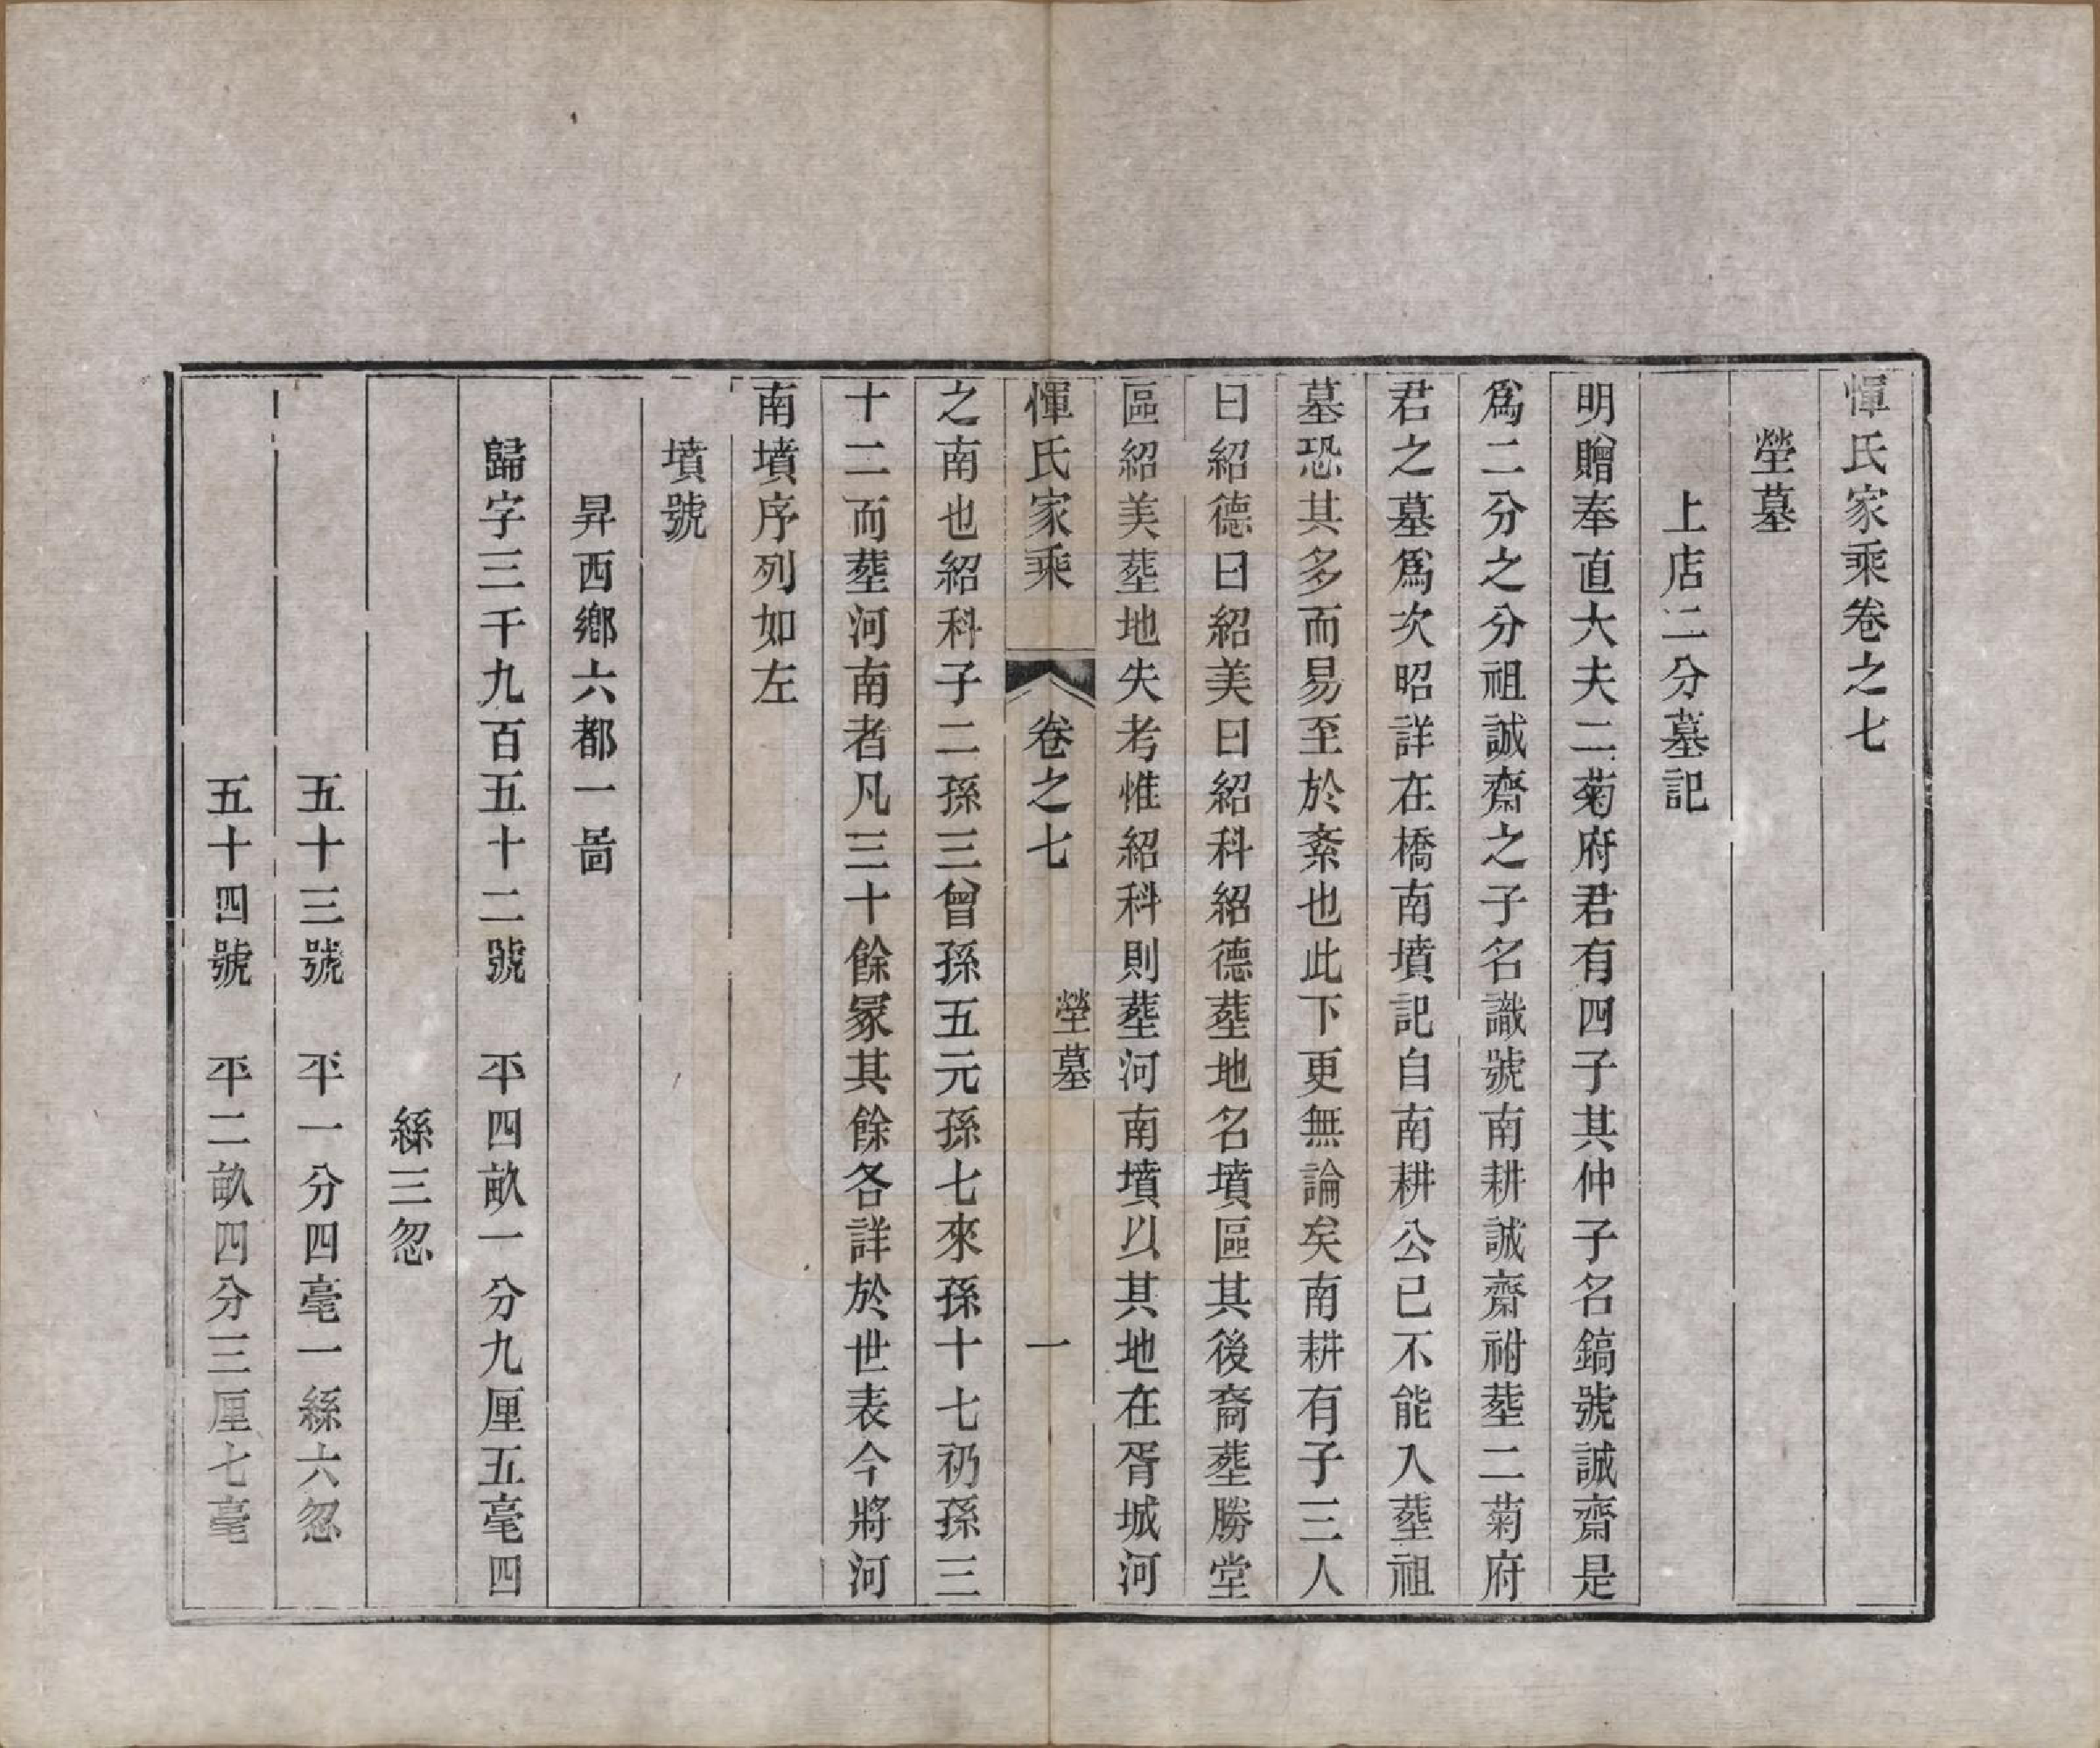 惲氏家乘卷之七
塋墓
上店二分墓記
明贈奉直大夫二菊府君有四子其仲子名鎬號誠齋是
爲二分之分祖誠齋之子名識號南耕誠齋祔塟二菊府
君之墓爲次昭詳在橋南墳記自南耕公已不能入塟祖
墓恐其多而易至於紊也此下更無論矣南耕有子三人
曰紹德曰紹美曰紹科紹德塟地名墳區其後裔塟勝堂
區紹美塟地失考惟紹科則塟河南墳以其地在胥城河
惲氏家乘 卷之七 塋墓 一
之南也紹科子二孫三曾孫五元孫七來孫十七礽孫三
十二而塟河南者凡三十餘冢其餘各詳於世表今將河
南墳序列如左
墳號
昇西鄉六都一啚
歸字三千九百五十二號 平四畝一分九厘五毫四
絲三忽
五十三號 平一分四毫一絲六忽
五十四號 平二畝四分三厘七毫